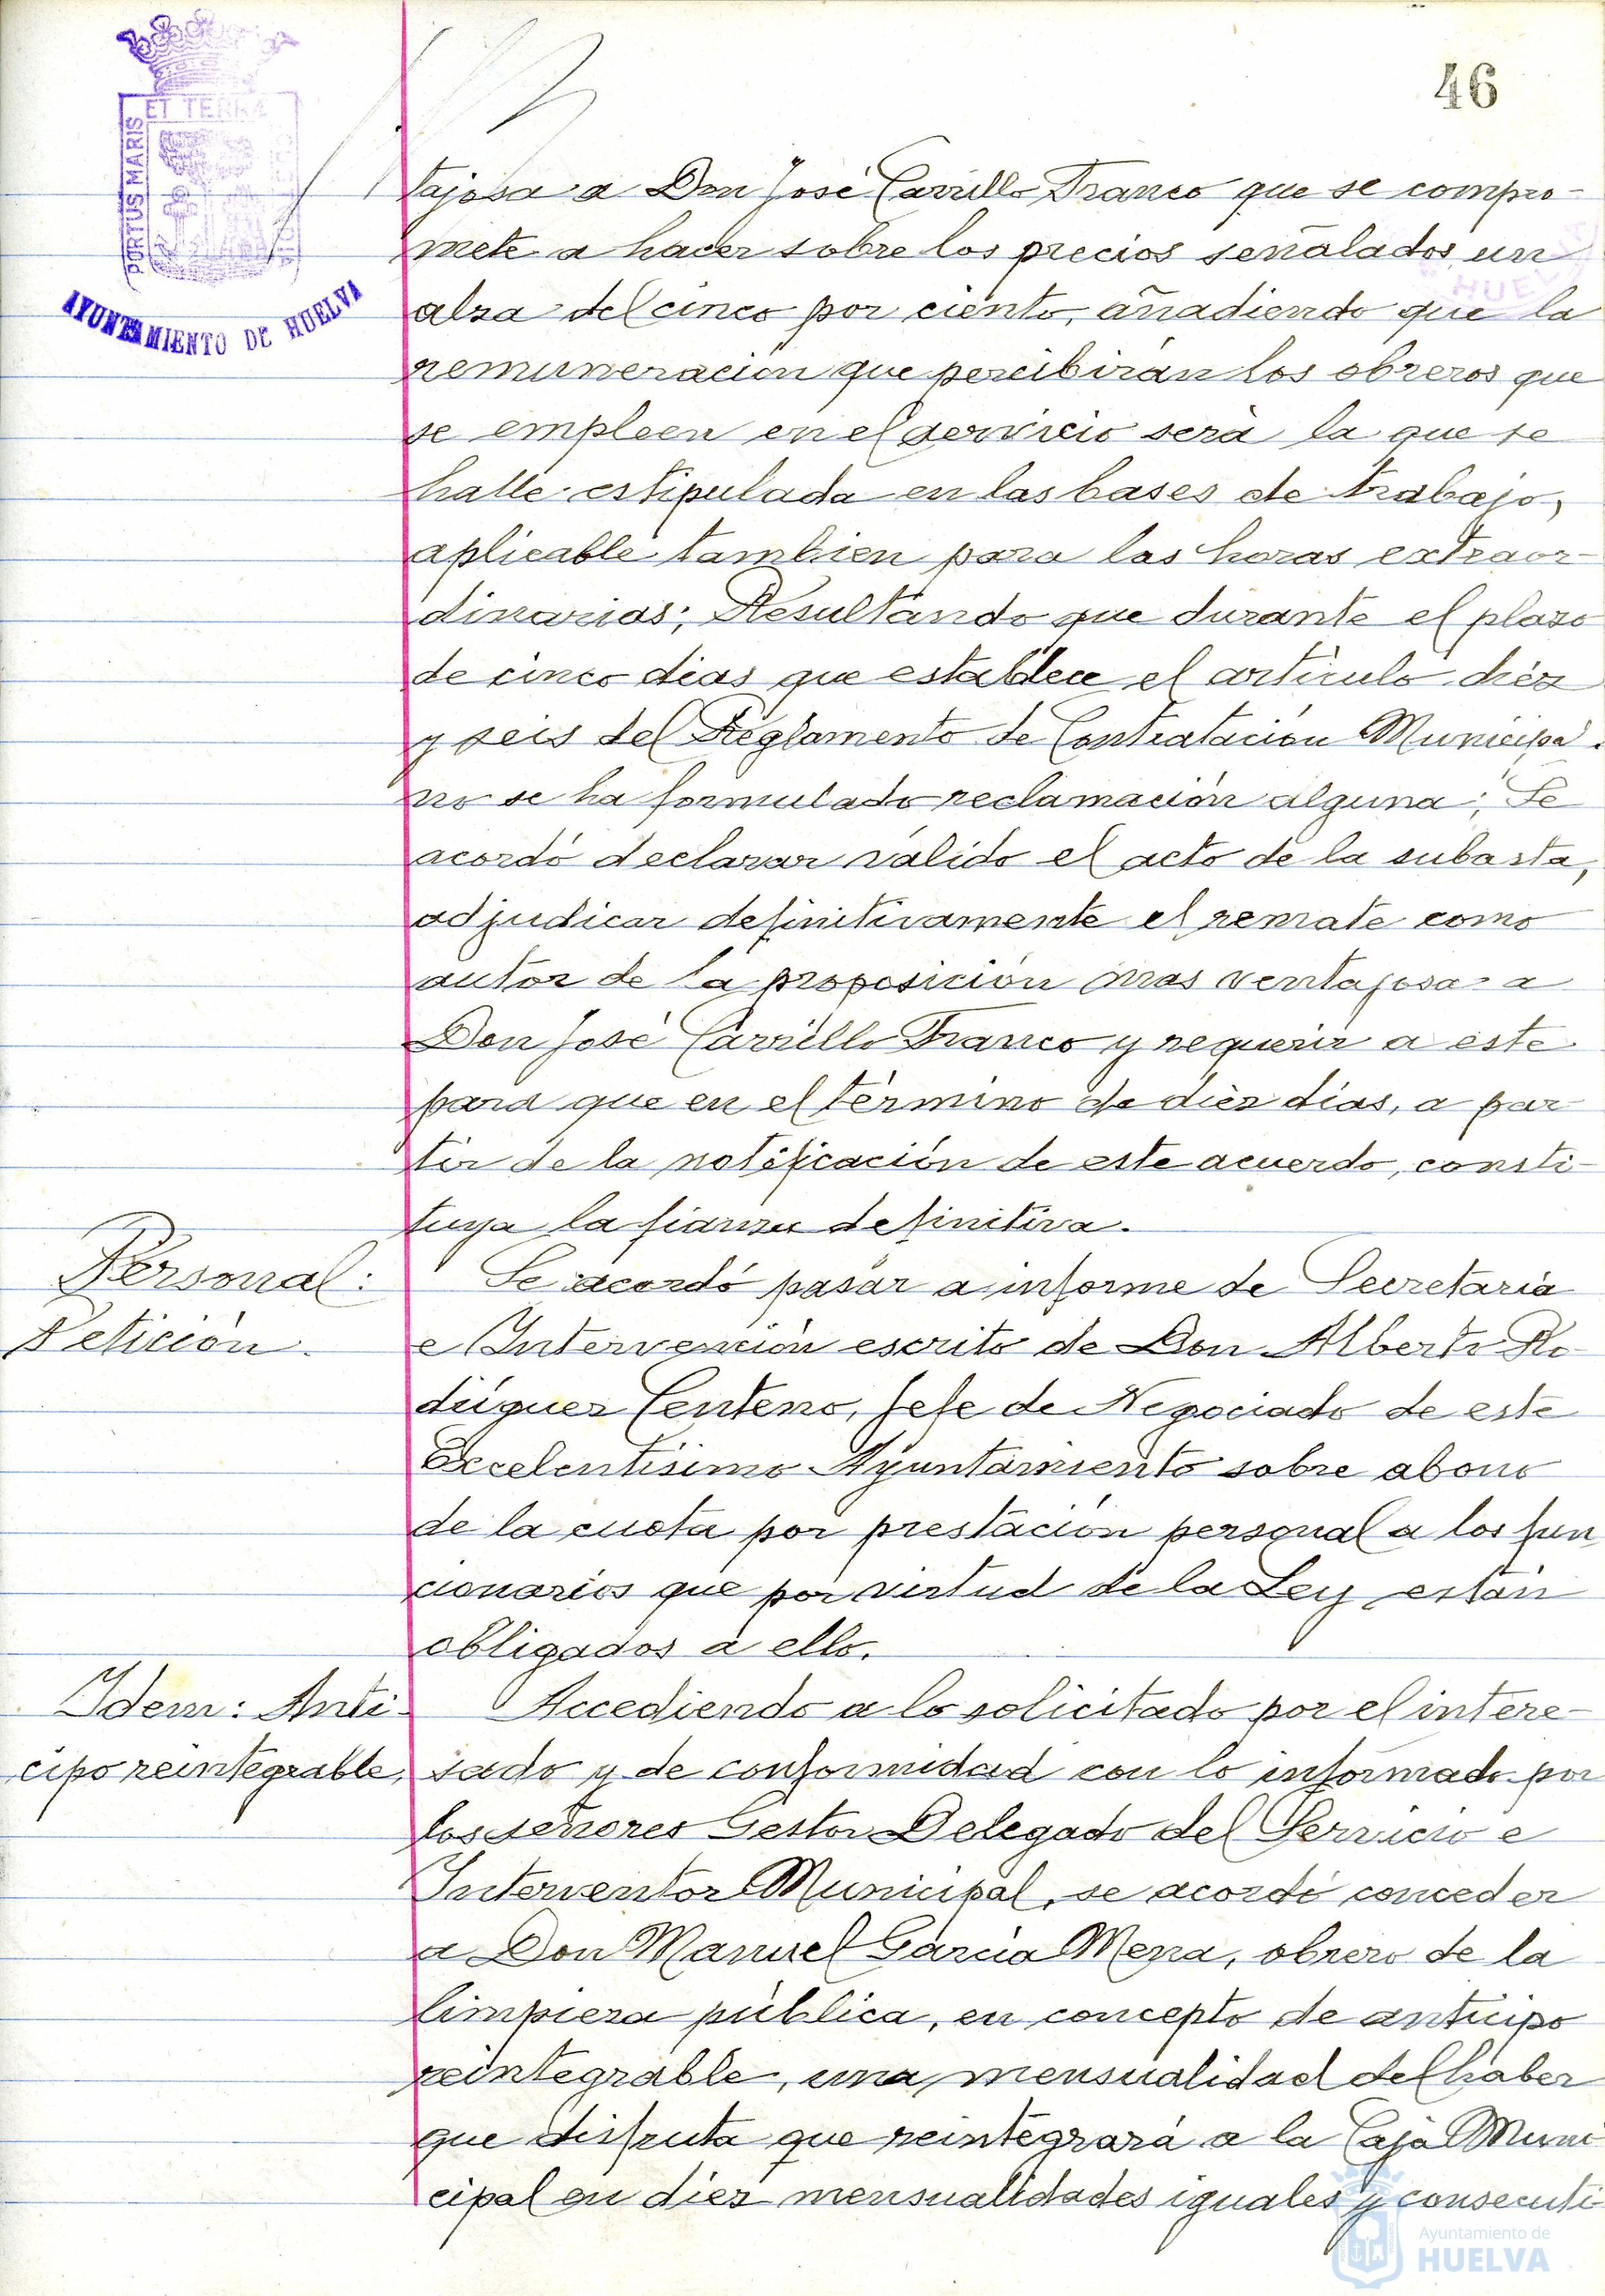 46
PORTUS MARIS
ET TERRÆ
AYUNTAMIENTO DE HUELVA
tajosa a Don José Carrillo Franco que se compro-
mete a hacer sobre los precios señalados un
alza del cinco por ciento, añadiendo que la
remuneración que percibirán los obreros que
se empleen en el servicio será la que se
halle estipulada en las bases de trabajo,
aplicable tambien para las horas extraor-
dinarias; Resultando que durante el plazo
de cinco dias que establece el artículo diéz
y seis del Reglamento de Contratación Municipal
no se ha formulado reclamación alguna; Se
acordó declarar válido el acto de la subasta,
adjudicar definitivamente el remate como
autor de la proposición mas ventajosa a
Don José Carrillo Franco y requerir a este
para que en el término de diéz días, a par
tir de la notificación de este acuerdo, consti-
tuya la fianza definitiva.
Personal:
Petición.
Se acordó pasar a informe de Secretaría
e Intervención escrito de Don Alberto Ro-
dríguez Centeno, Jefe de Negociado de este
Excelentísimo Ayuntamiento sobre abono
de la cuota por prestación personal a los fun
cionarios que por virtud de la Ley están
obligados a ello.
Idem: Anti-
cipo reintegrable,
Accediendo a lo solicitado por el intere-
sado y de conformidad con lo informado por
los señores Gestor Delegado del Servicio e
Interventor Municipal, se acordó conceder
a Don Manuel García Mena, obrero de la
limpieza pública, en concepto de anticipo
reintegrable, una mensualidad del haber
que disfruta que reintegrará a la Caja Muni
cipal en diez mensualidades iguales y consecuti-
Ayuntamiento de
HUELVA